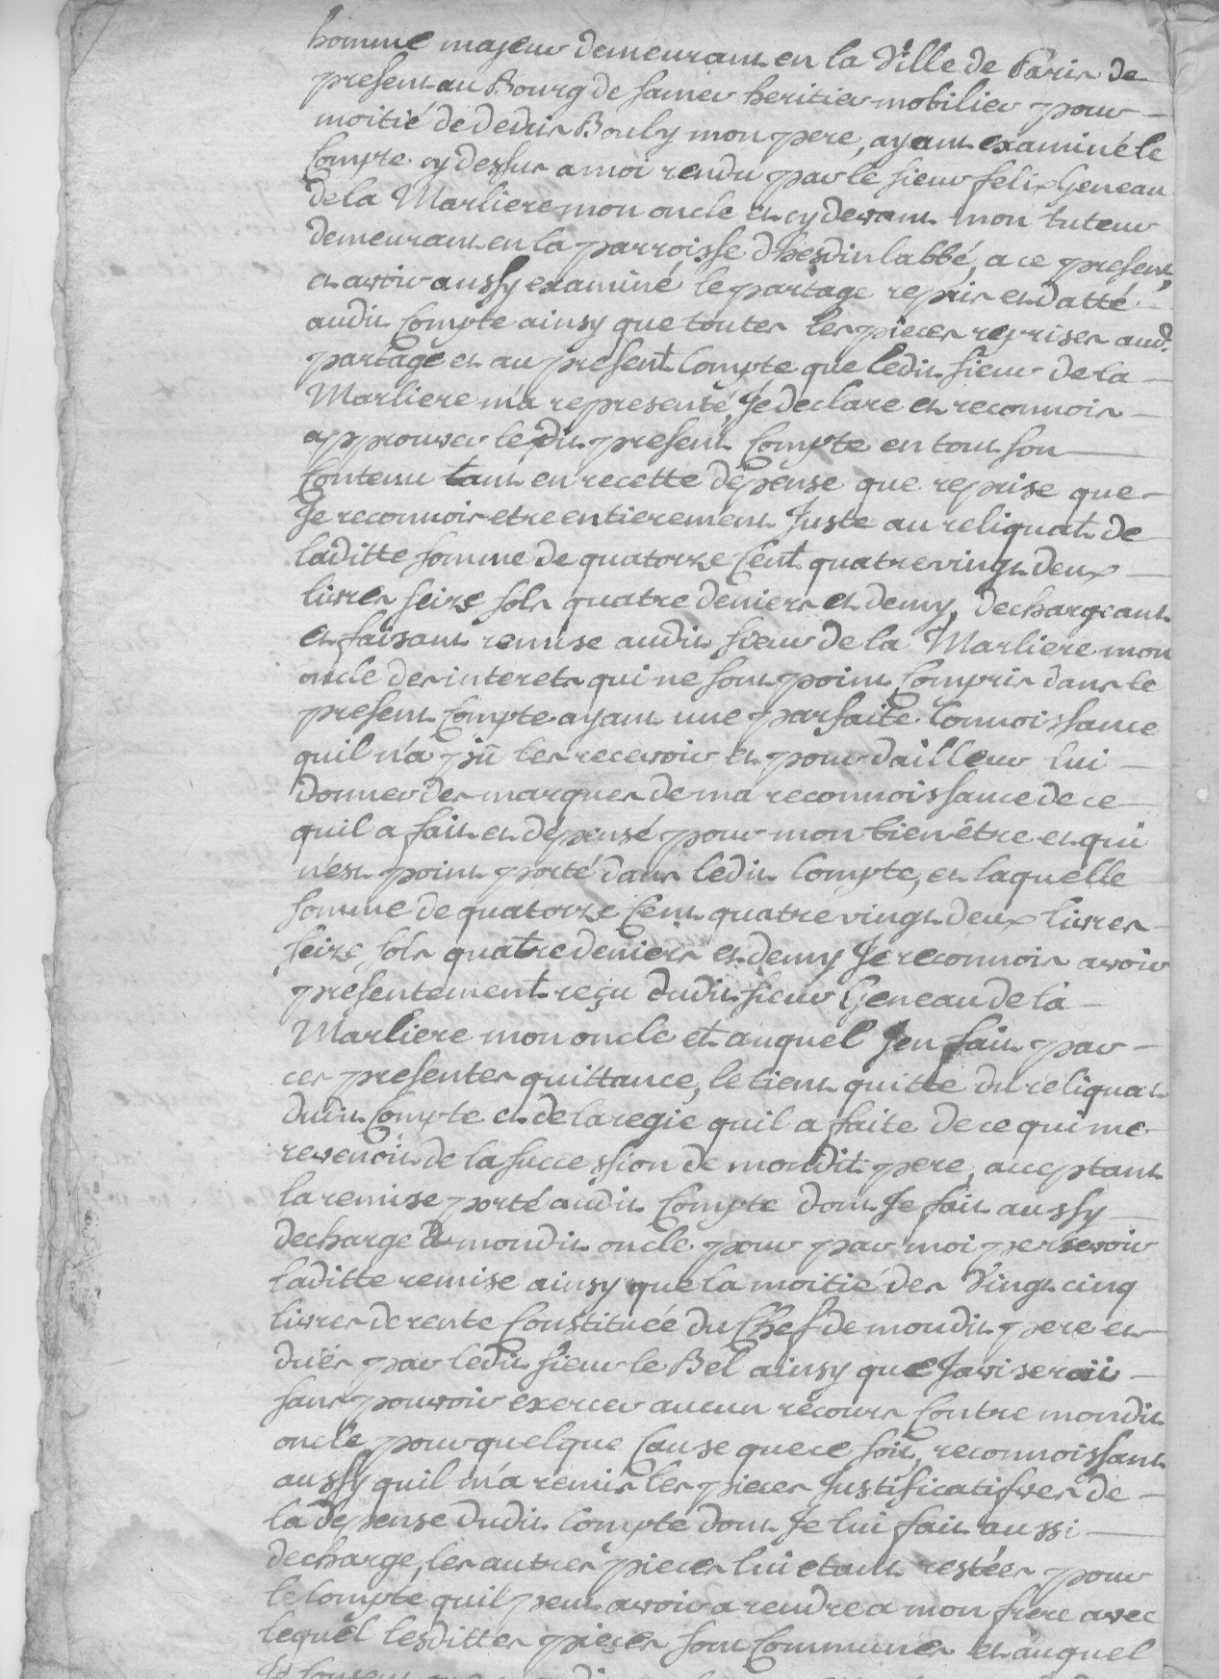 homme majeur demeurant en la Ville de Paris de
present au Bourg de samer heritier mobilier pour
moitié de Bouly mon pere, ayant examiné le
Compte cy dessus a moi rendu par le sieur felix Geneau
de la Marliere mon oncle et cy devant mon tuteur
demeurant en la parroisse d'hesdinlabbé, a ce present,
et avoir aussy examiné le partage repris et datté
audit Compte ainsy que toutes les pieces reprises aud.
partage et au present Compte que ledit sieur de la
Marliere m'a representé, Je declare et reconnois
approuver ledit present Compte en tout son
Contenu tant en recette dépense que reprise que
Je reconnois etre entierement Juste au reliquat de
laditte somme de quatorze Cent quatrevingt deux
livres seize sols quatre deniers et demy, dechargeant
et faisant remise audit sieur de la Marliere mon
oncle des interets qui ne sont point Compris dans le
present Compte ayant une parfaite Connoissance
quil n'a pû les recevoir et pour d'ailleur lui
donner des marques de ma reconnoissance de ce
quil a fait et dépensé pour mon bien être et qui
n'est point porté dans ledit Compte, et laquelle
somme de quatorze Cent quatrevingt deux livres
seize sols quatre deniers et demy Je reconnois avoir
presentement reçu dudit sieur Geneau de la
Marliere mon oncle et auquel J'en fait par
ces presentes quittance, le tient quitte du reliquat
dudit Compte et de la regie quil a faite de ce qui me
revenoit de la succession de mondit pere, acceptant
la remise porté audit Compte dont Je fait aussy
decharge a mondit oncle pour par moi percevoir
laditte remise ainsy que la moitié des Vingt cinq
livres de rente Constituée du Chef de mondit pere et
dues par ledit sieur le Bel ainsy que J'aviserai
sans pouvoir exercer aucun recours Contre mondit
oncle pour quelque Cause que ce soit, reconnoissant
aussy quil m'a remis les pieces Justificatifves de
la depense dudit Compte dont Je lui fait aussi
decharge, les autres pieces lui etant restées pour
le Compte quil peut avoir a rendre a mon frere avec
lequel lesdittes pieces sont Communes et auquel